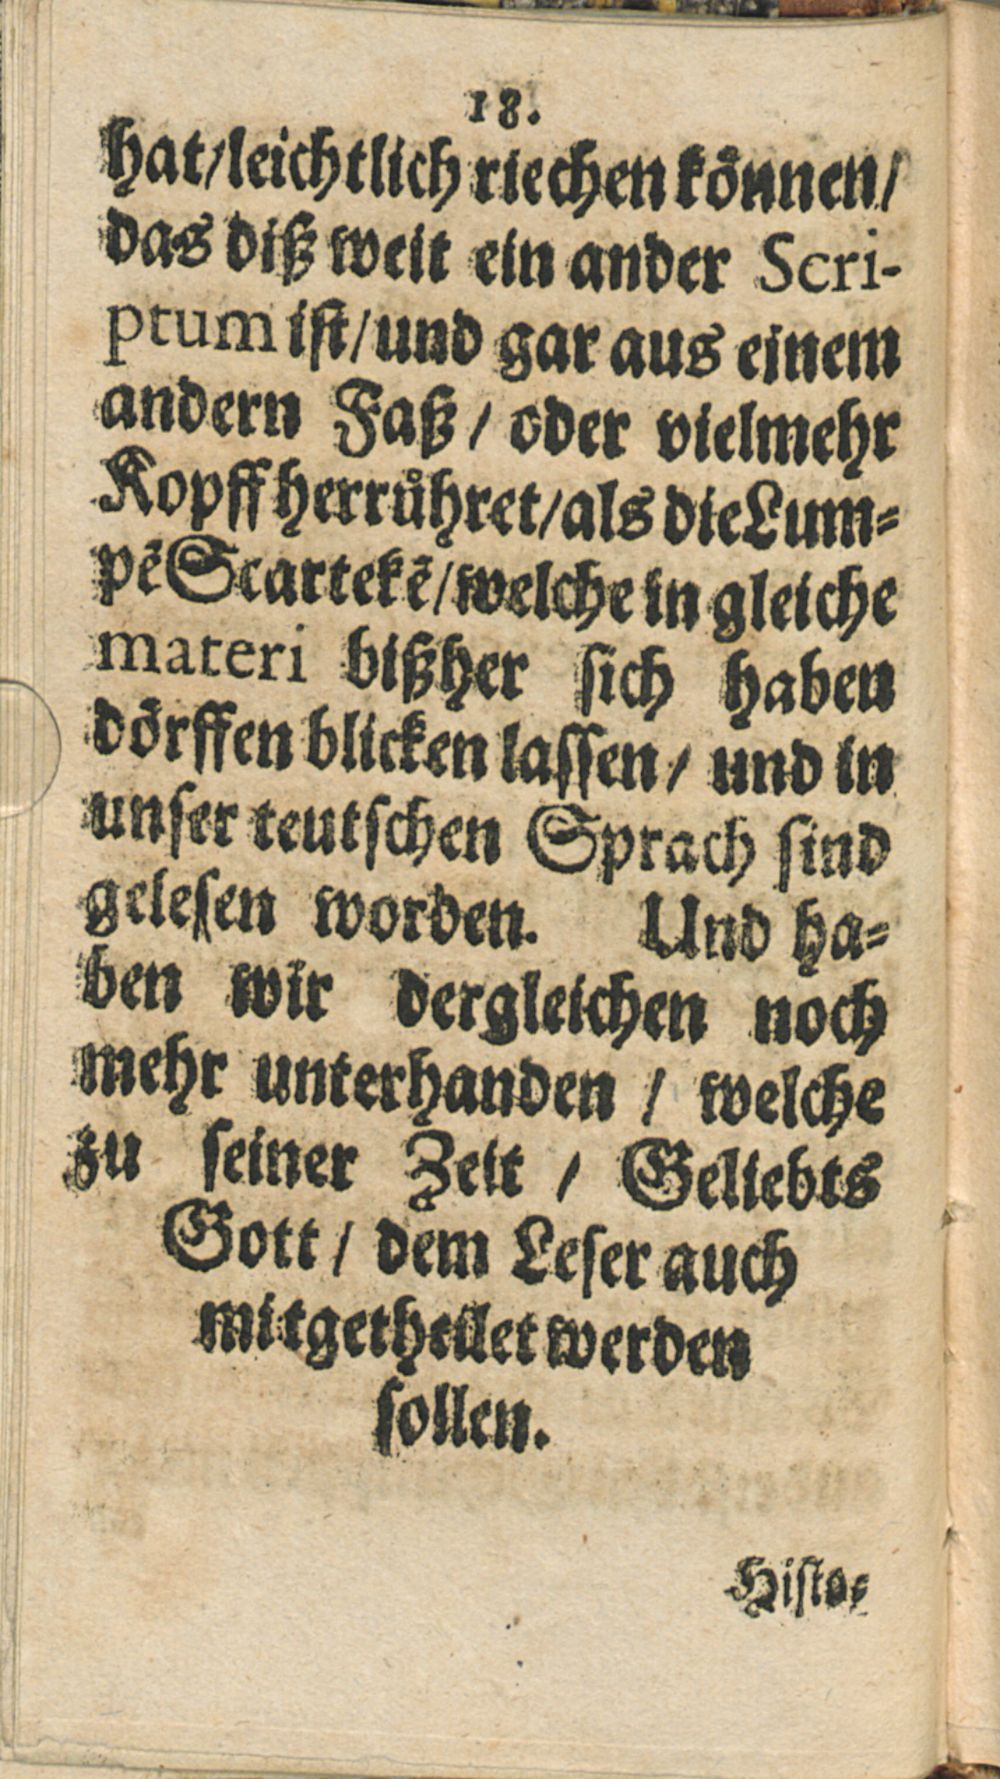 18.
hat/leichtlich riechen können/
das diß weit ein ander Scri-
ptum ist/und gar aus einem
andern Faß / oder vielmehr
Kopff herrůhret/als die Lum=
pẽ Scartekẽ/welche in gleiche
materi bißher sich haben
dörffen blicken lassen/ und in
unser teutschen Sprach sind
gelesen worden. Und ha=
ben wir dergleichen noch
mehr unterhanden / welche
zu seiner Zeit / Geliebts
Gott / dem Leser auch
mitgetheilet werden
sollen.
Histo=